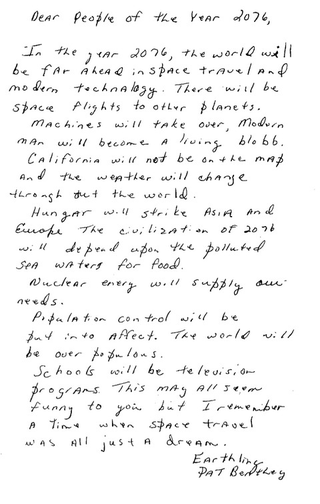 Dear People of the Year 2076,
In the year 2076, the world will
be far ahead in space travel and
modern technology. There will be
space flights to other planets.
Machines will take over, Modern
man will become a living blobb.
California will not be on the map
and the weather will change
through out the world.
Hungar will strike Asia and
Europe The civilization of 2076
will depend upon the polluted
sea waters for food.
Nuclear energy will supply our
needs.
Population control will be
put into affect. The world will
be over populous.
Schools will be television
programs. This may all seem
funny to you but I remember
a time when space travel
was all just a dream.
Earthling
Pat